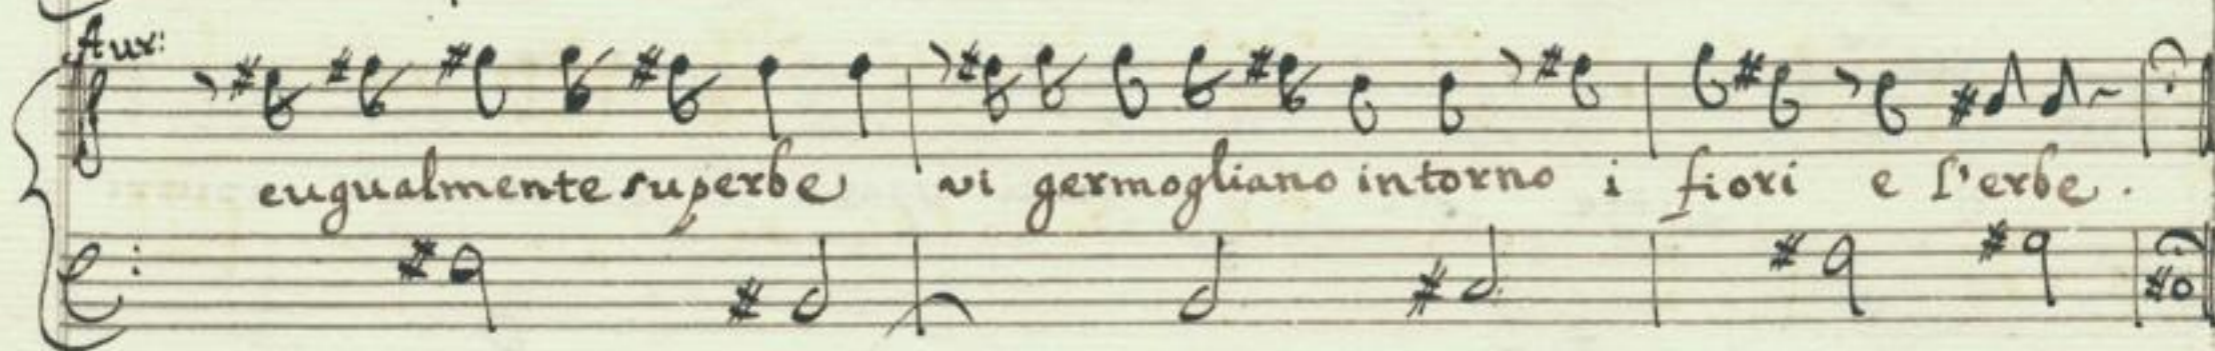 Aur:
eugualmente superbe vi germogliano intorno i fiori e l'erbe.